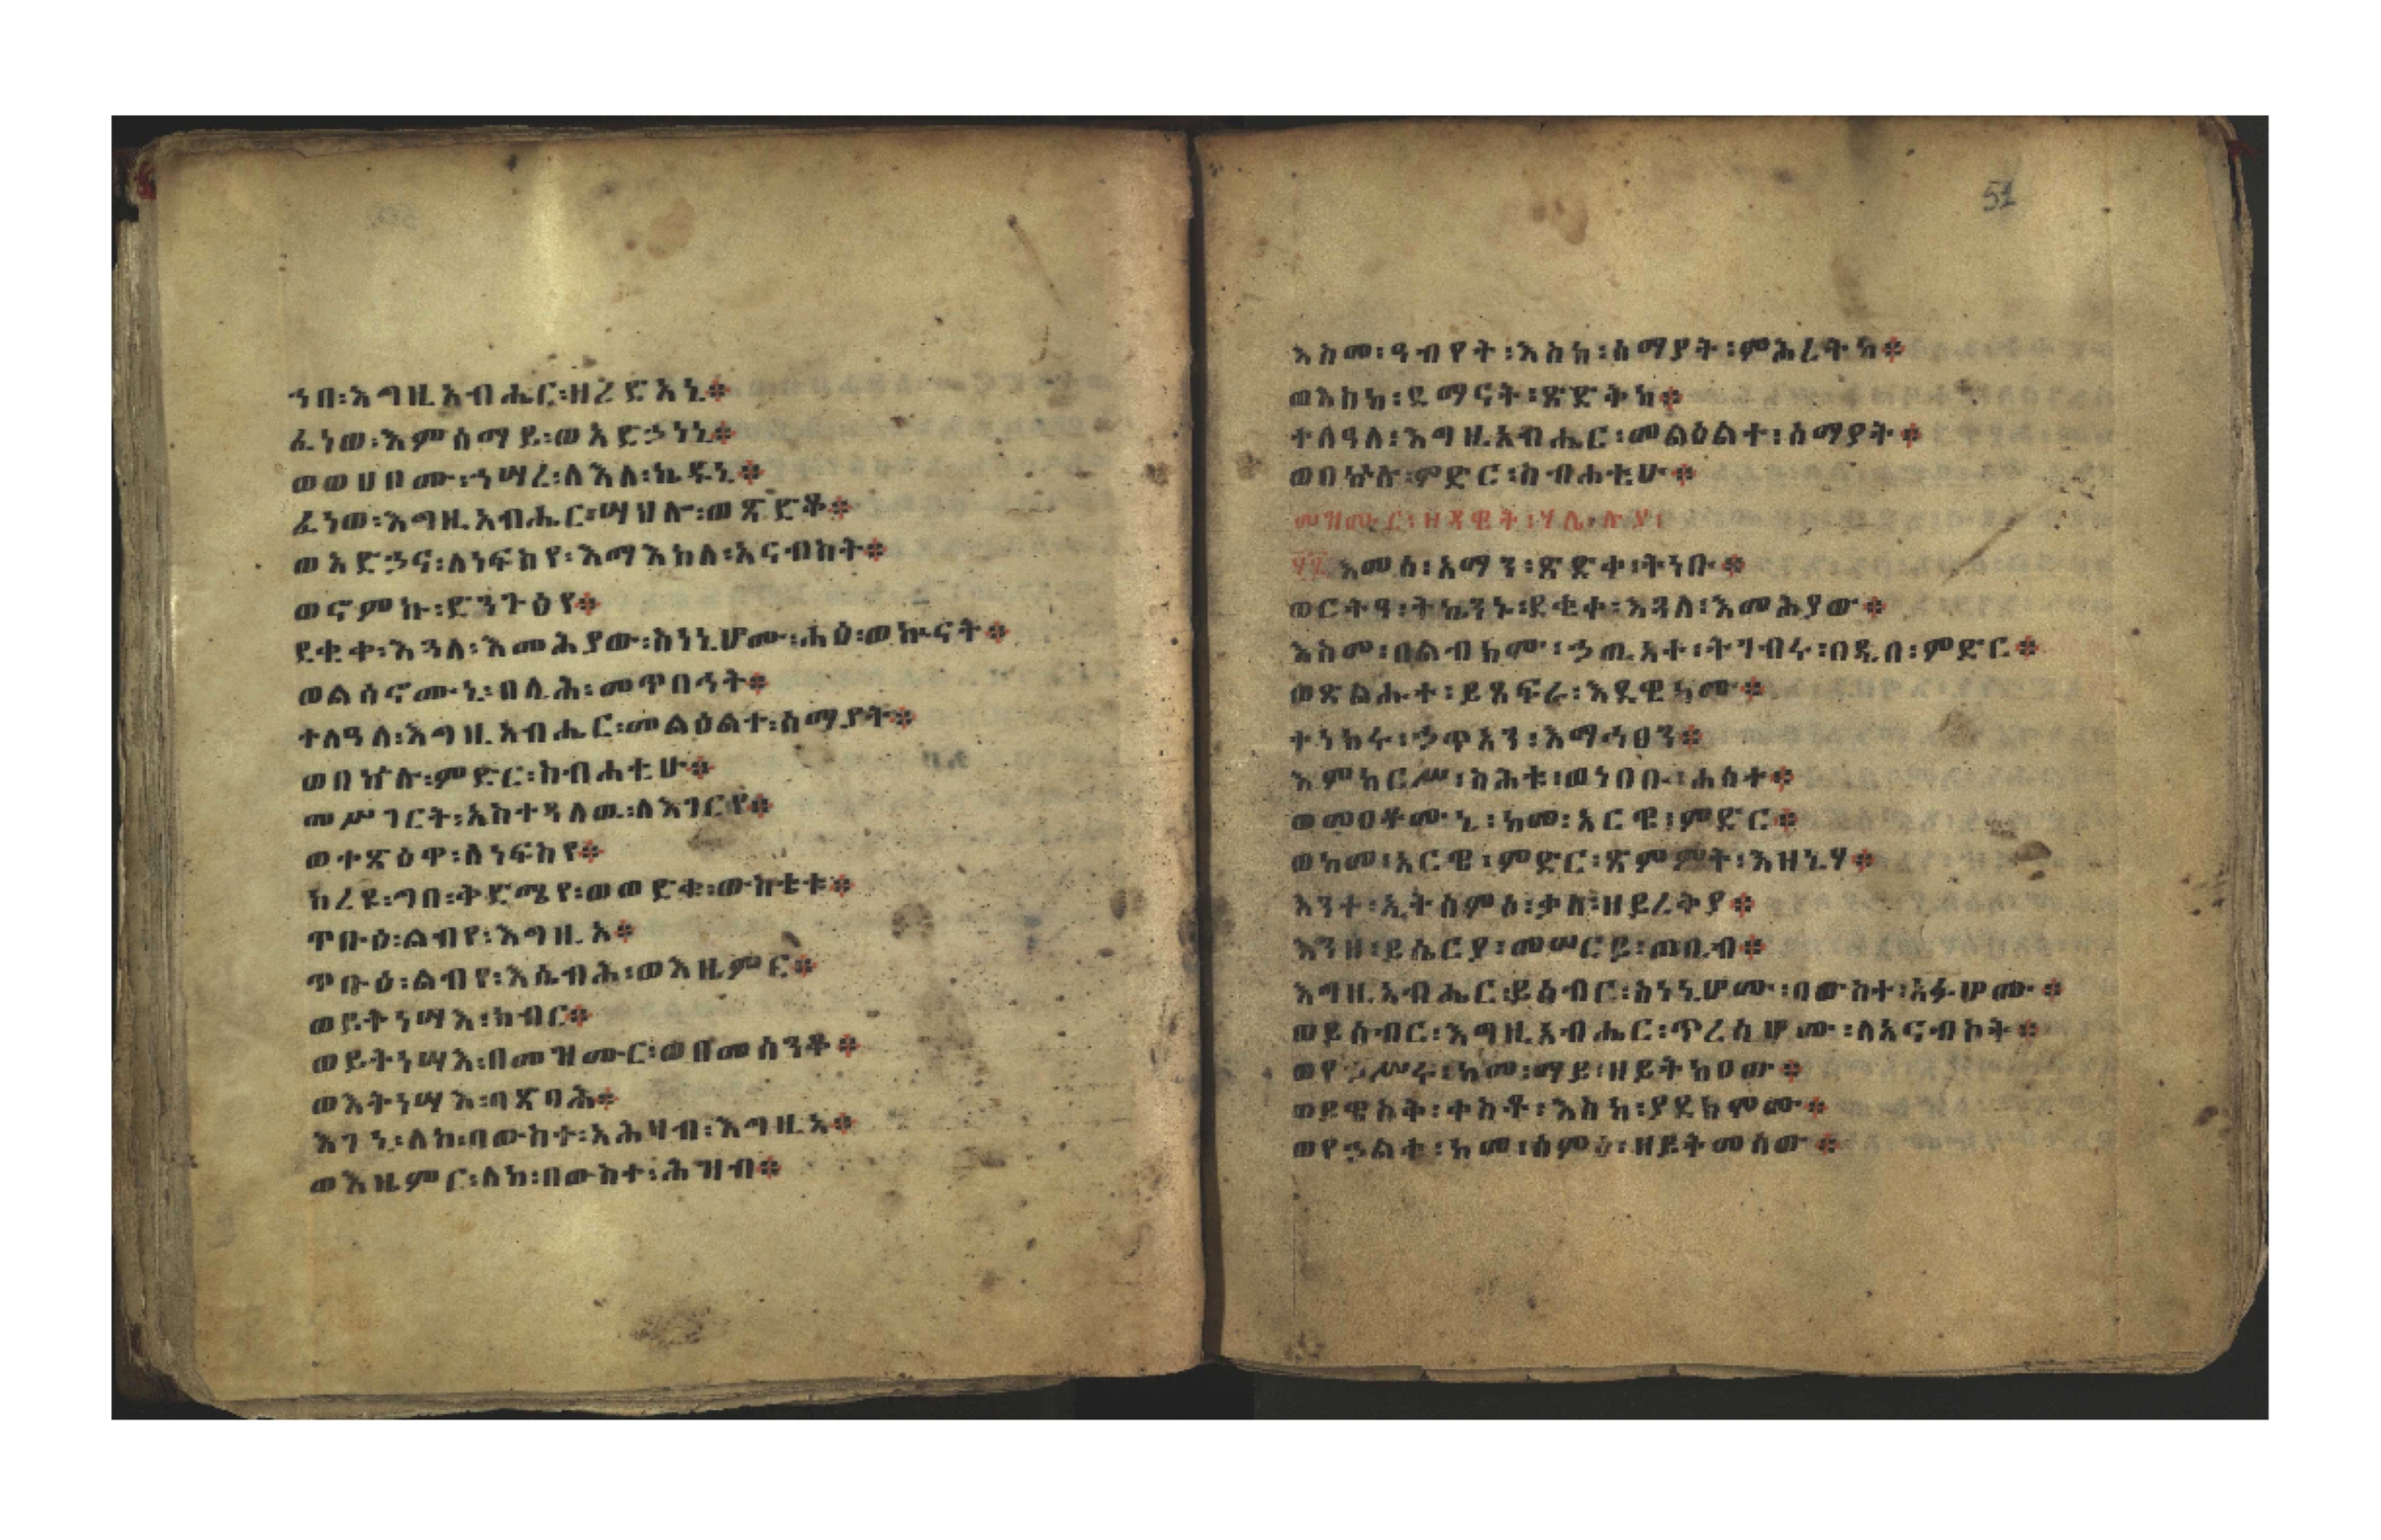 ኀበ፡እግዚአብሔር፡ዘረድአኒ፨
ፈነወ፡እምሰማይ፡ወአድኃነኒ፨
ወወሀቦሙ፡ኀሣረ፡ለእለ፡ኬዱኒ፨
ፈነወ፡እግዚአብሔር፡ሣህሎ፡ወጽድቆ፨
ወአድኃና፡ለነፍስየ፡እማእከለ፡አናብስት፨
ወኖምኩ፡ድንጉፅየ፨
ደቂቀ፡እጓለ፡እመሕያው፡ስነኒሆሙ፡ሐፅ፡ወኲናት፨
ወልሳኖሙኒ፡በሊሕ፡መጥባኅት፨
ተለዓለ፡እግዚአብሔር፡መልዕልተ፡ሰማያት፨
ወበኵሉ፡ምድር፡ስብሐቲሁ፨
መሥገርት፡አስተዳለዉ፡ለእገርየ፨
ወተጽዕዋ፡ለነፍስየ፨
ከረዩ፡ግበ፡ቅድሜየ፡ወወድቁ፡ውስቴቱ፨
ጥቡዕ፡ልብየ፡እግዚአ፨
ጥቡዕ፡ልብየ፡እሴብሕ፡ወእዜምር፨
ወይትነሣእ፡ክብር፨
ወይትነሣእ፡በመዝሙር፡ወበመሰንቆ፨
ወእትነሣእ፡በጽባሕ፨
እገኒ፡ለከ፡በውስተ፡አሕዛብ፡እግዚአ፨
ወእዜምር፡ለከ፡በውስተ፡ሕዝብ፨
51
እስመ፡ዓብየት፡እስከ፡ሰማያት፡ምሕረትከ፨
ወእስከ፡ደማናት፡ጽድቅከ፨
ተለዓለ፡እግዚአብሔር፡መልዕልተ፡ሰማያት፨
ወበኵሉ፡ምድር፡ስብሐቲሁ፨
መዝሙር፡ዘዳዊት፡ሃሌሉያ፡
፶፯ እመሰ፡አማን፡ጽድቀ፡ትነቡ፨
ወርትዓ፡ትኴንኑ፡ደቂቀ፡እጓለ፡እመሕያው፨
እስመ፡በልብክሙ፡ኃጢአተ፡ትገብሩ፡በዲበ፡ምድር፨
ወጽልሑተ፡ይጸፍራ፡እደዊክሙ፨
ተነክሩ፡ኃጥአን፡እማኅፀን፨
እምከርሥ፡ስሕቱ፡ወነበቡ፡ሐሰተ፨
ወመዐቶሙኒ፡ከመ፡አርዌ፡ምድር፨
ወከመ፡አርዌ፡ምድር፡ጽምምት፡እዘኒሃ፨
እንተ፡ኢትሰምዕ፡ቃለ፡ዘይረቅያ፨
እንዘ፡ይሴርያ፡መሠርይ፡ጠቢብ፨
እግዚአብሔር፡ይሰብር፡ስነኒሆሙ፡በውስተ፡አፉሆሙ፨
ወይሰብር፡እግዚአብሔር፡ጥረሲሆሙ፡ለአናብስት፨
ወየኃሥሩ፡ከመ፡ማይ፡ዘይትከዐው፨
ወይዌስቅ፡ቀስቶ፡እስከ፡ያደክሞሙ፨
ወየኃልቁ፡ከመ፡ሰምዕ፡ዘይትመሰው፨